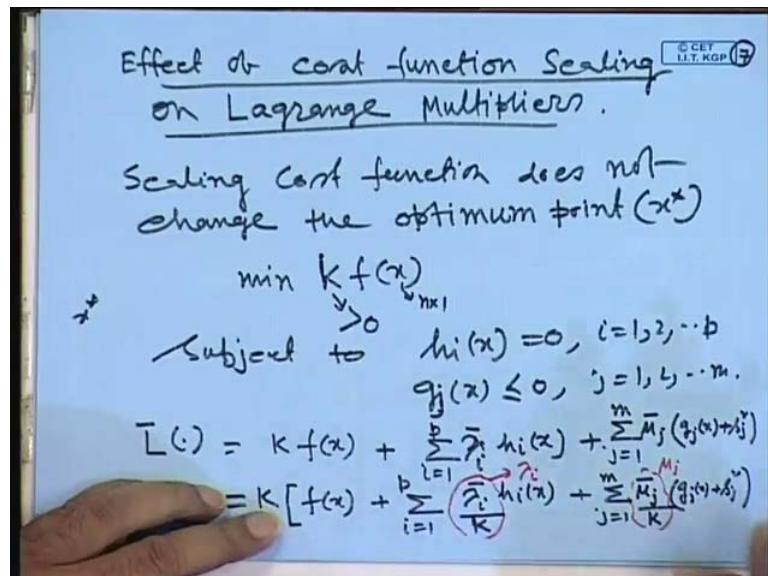 Effect of cost function Scaling
on Lagrange Multipliers.
© CET
I.I.T. KGP
17
Scaling cost function does not
change the optimum point (x*)
min K f(x)
>0
n×1
x*
Subject to hi(x) = 0, i = 1, 2, ·· p
gj(x) ≤ 0, j = 1, 2, ·· m.
L̄(·) = K f(x) + Σ_{i=1}^{p} λ̄i hi(x) + Σ_{j=1}^{m} μ̄j (gj(x) + sj²)
= K [ f(x) + Σ_{i=1}^{p} (λ̄i/K) hi(x) + Σ_{j=1}^{m} (μ̄j/K) (gj(x) + sj²)
λi
μj